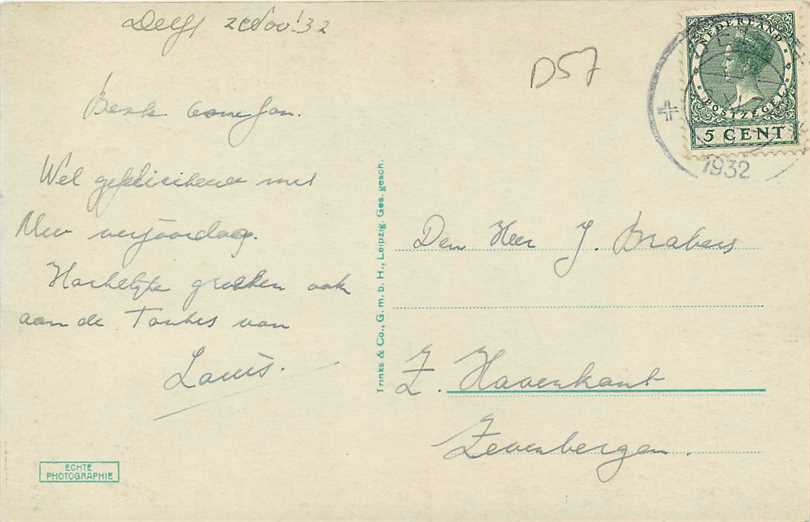 Delft 2 Nov! 32
D57
NEDERLAND
POSTZEGEL
5 CENT
1932
Beste oome Jan.
Wel gefeliciteerd met
Uw verjaardag.
Hartelijke groeten ook
aan de Tantes van
Louis.
Trinks & Co., G. m. b. H., Leipzig. Ges. gesch.
Den Heer J. Brabers
Z. Havenkant
Zevenbergen.
ECHTE
PHOTOGRAPHIE